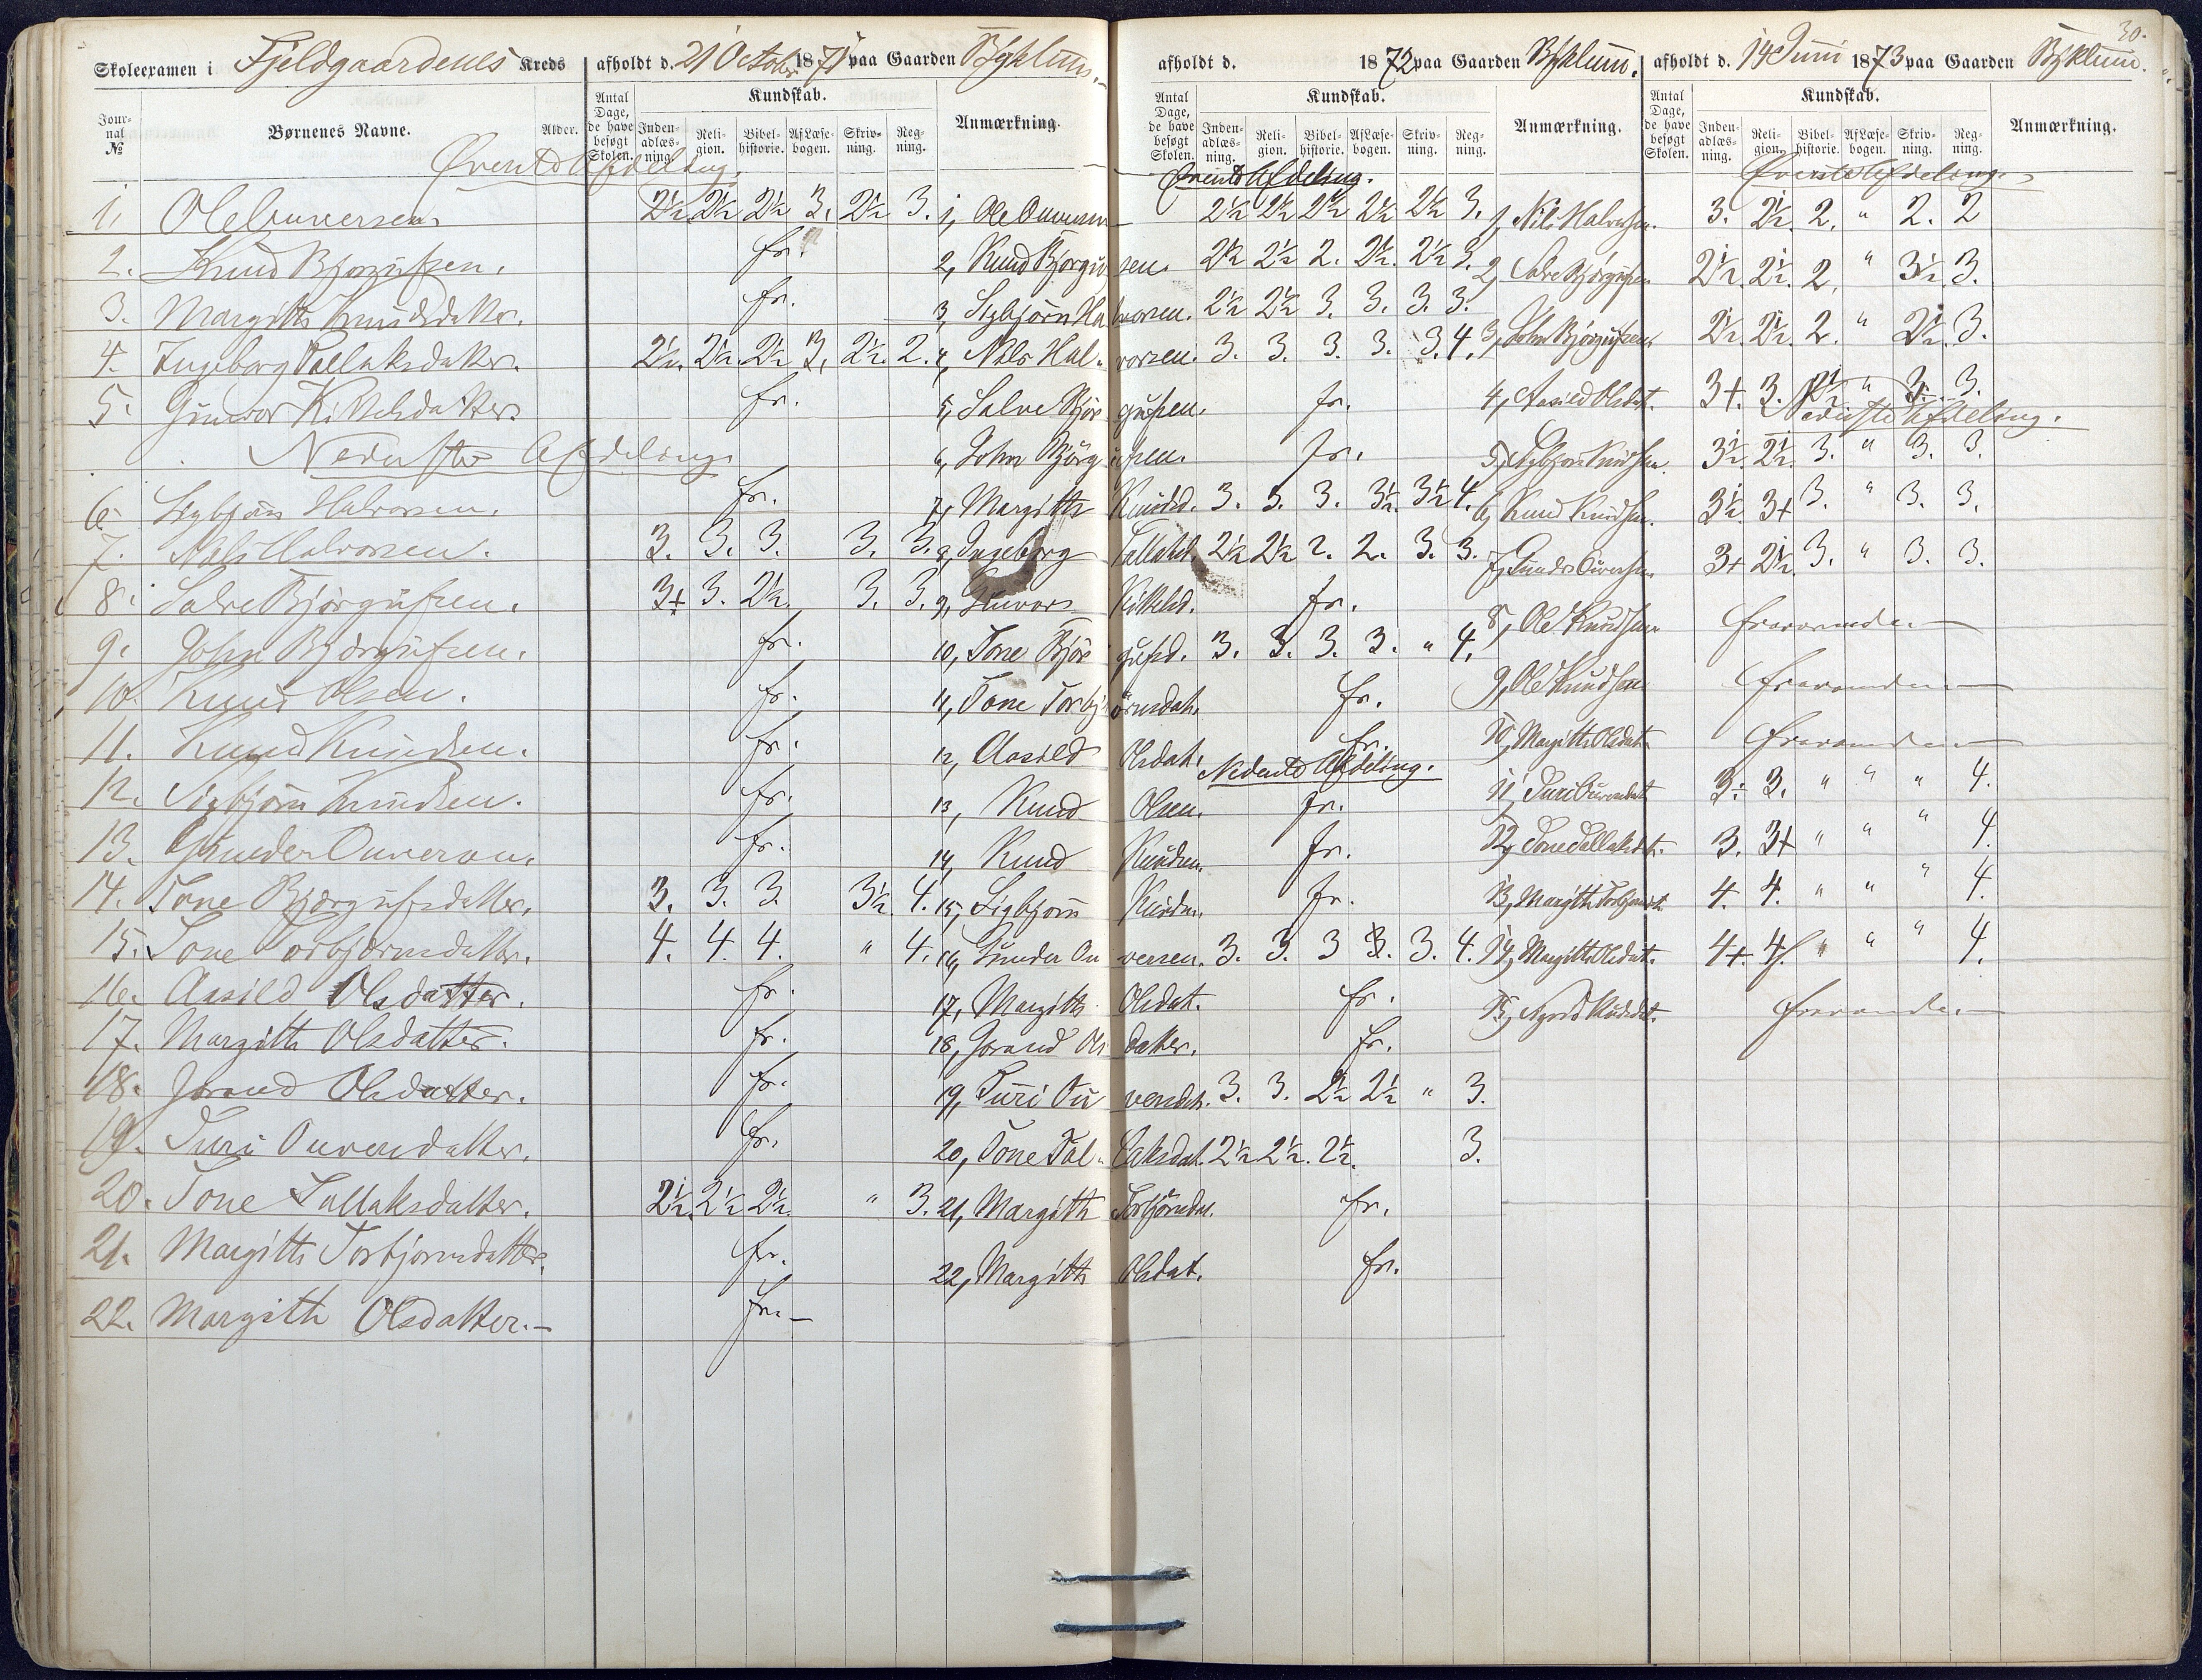 30.
Skoleexamen i Fjeldgaardenes Kreds afholdt d. 21 October 1871 paa Gaarden Bÿklum. afholdt d. 1872 paa Gaarden Byklum. afholdt d. 14 Juni 1873 paa Gaarden Byklum.
Jour-nal № Børnenes Navne. Alder. Antal Dage, de have besøgt Skolen. Kundskab. Inden-adlæs-ning. Reli-gion. Bibel-historie. AfLæse-bogen. Skriv-ning. Reg-ning. Anmærkning.
Antal Dage, de have besøgt Skolen. Kundskab. Inden-adlæs-ning. Reli-gion. Bibel-historie. AfLæse-bogen. Skriv-ning. Reg-ning. Anmærkning.
Antal Dage, de have besøgt Skolen. Kundskab. Inden-adlæs-ning. Reli-gion. Bibel-historie. AfLæse-bogen. Skriv-ning. Reg-ning. Anmærkning.
Øverste Afdeling.
1. Ole Ouversen 2½ 2½ 2½ 3. 2½ 3.
2. Knud Bjørgufsen. fr.
3. Margith Knudsdatter. fr.
4. Ingeborg Tallaksdatter. 2½. 2½. 2½ 3. 2½. 2.
5. Gunvor Kittelsdatter. fr.
Nederste Afdeling
6. Sigbjørn Halvorsen. fr.
7. Nils Halvorsen. 3. 3. 3. 3. 3.
8. Salve Bjørgufsen. 3+ 3. 2½. 3. 3.
9. John Bjørgufsen. fr.
10. Knud Olsen. fr.
11. Knud Knudsen. fr.
12. Sigbjørn Knudsen. fr.
13. Gunder Ouverson. fr.
14. Tone Bjørgufsdatter. 3. 3. 3. 3½. 4.
15. Tone Torbjørnsdatter. 4. 4. 4. " 4.
16. Aasild Olsdatter. fr.
17. Margith Olsdatter. fr.
18. Jorand Olsdatter. fr.
19. Turi Ouversdatter. fr.
20. Tone Tallaksdatter. 2½. 2½ 2½. " 3.
21. Margith Torbjornsdatter. fr.
22. Margith Olsdatter.— fr.—
Øverste Afdeling.
1, Ole Ouversen 2½ 2½ 2½ 2½ 2½ 3.
2, Knud Bjørgufsen. 2½ 2½ 2. 2½. 2½ 3.
3, Sigbjørn Halvorsen. 2½ 2½ 3. 3. 3. 3.
4, Nils Halvorsen. 3. 3. 3. 3. 3. 4.
5, Salve Bjørgufsen. fr.
6, John Bjørgufsen. fr.
7, Margith Knudsd. 3. 3. 3. 3½. 3½ 4.
8, Ingeborg Tallaksd. 2½ 2½ 2. 2. 3. 3.
9, Gunvor Kittelsd. fr.
10, Tone Bjørgufsd. 3. 3. 3. 3. " 4.
11, Tone Torbjørnsdat. fr.
12, Aasild Olsdat. fr.
Nederste Afdeling.
13, Knud Olsen. fr.
14, Knud Knudsen. fr.
15, Sigbjørn Knudsn. fr.
16, Gunder Ouversen. 3. 3. 3 3. 3. 4.
17, Margith Olsdat. fr.
18, Jorand Olsdatter. fr.
19, Turi Ouversdat. 3. 3. 2½ 2½ " 3.
20, Tone Tallaksdat. 2½ 2½. 2½. 3.
21, Margith Torbjørnsdat. fr.
22, Margith Olsdat. fr.
Øverste Afdeling.
1, Nils Halvorsen. 3. 2½. 2. " 2. 2
2, Salve Bjørgufsen 2½. 2½. 2. " 3½. 3.
3, John Bjørgufsen. 2½. 2½. 2. " 2½. 3.
4, Aasild Olsdat. 3+. 3. 2½ " 3. 3.
Nederste Afdeling.
5, Sigbjørn Knudsen. 3½. 2½. 3. " 3. 3.
6, Knud Knudsen. 3½. 3+ 3. " 3. 3.
7, Gunder Ouversen 3+ 2½. 3. " 3. 3.
8, Ole Knudsen fraværende.—
9, Ole Knudsen fraværende—
10, Margith Olsdat. fraværende—
11, Turi Ouversdat 3÷ 3. " " " 4.
12, Tone Tallaksdat. 3. 3+ " " " 4.
13, Margith Torbjørnsdt. 4. 4. " " " 4.
14, Margith Olsdat. 4+. 4. " " " 4.
15, Knudsdat. fraværende.—